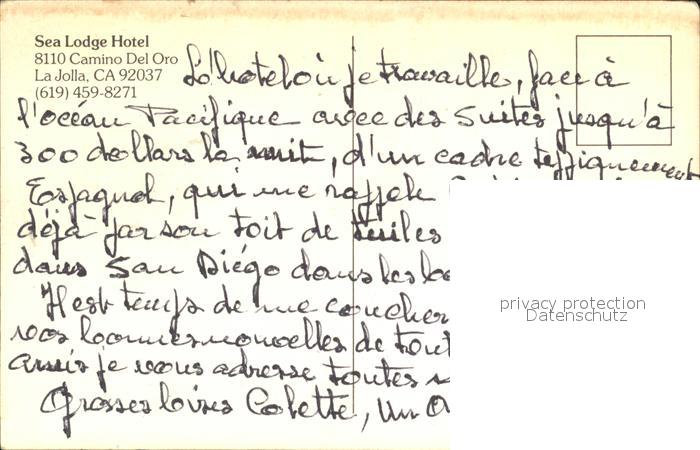 Sea Lodge Hotel
8110 Camino Del Oro
La Jolla, CA 92037
(619) 459-8271
L'hotel où je travaille, face à
l'océan Pacifique avec des Suites jusqu'à
300 dollars la nuit, d'un cadre typiquement
Espagnol, qui me rappelle
déjà par son toit de tuiles
dans San Diégo dans les
Il est temps de me coucher
vos bonnes nouvelles de tout
amis je vous adresse toutes
Grosses bises Colette, Un
privacy protection
Datenschutz